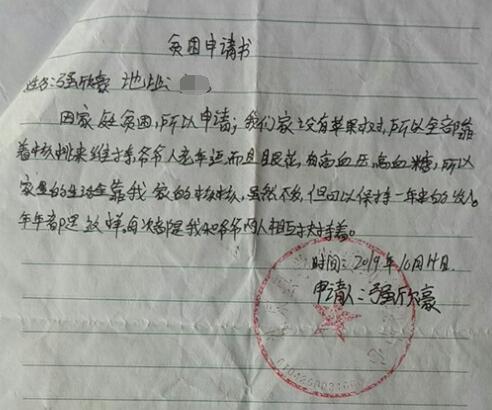 贫困申请书
姓名:强欣豪 地址:
因家庭贫困,所以申请;我们家没有苹果树,所以全部靠
着核桃来维持,爷爷人老年迈,而且眼花,有高血压,高血糖,所以
家里的生活全靠我家的核桃,虽然不多,但可以保持一年的收入。
年年都是这样,每次都是我和爷爷两人相互扶持着。
时间:2019年10月14日
申请人:强欣豪